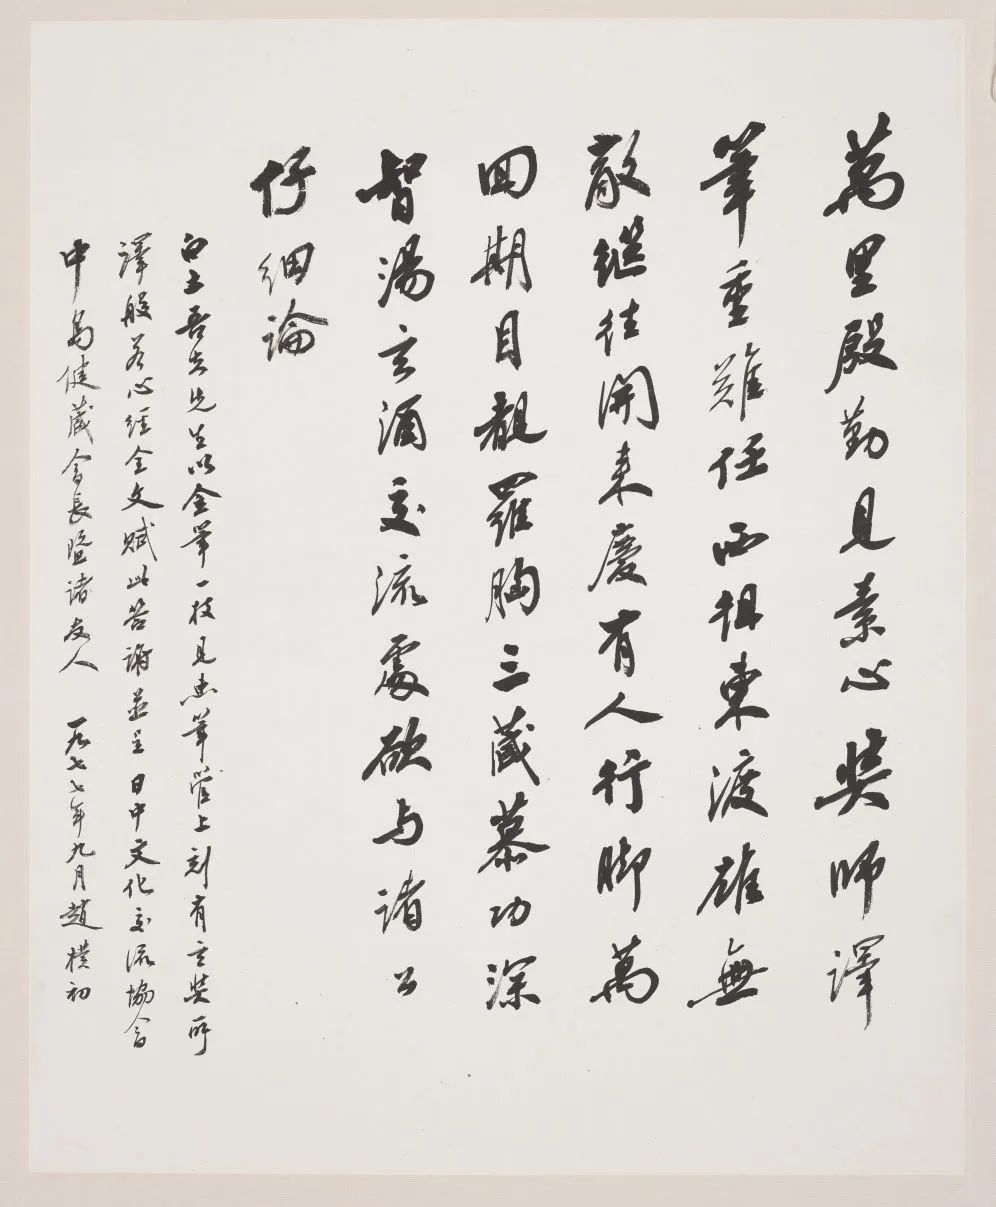 萬里殷勤見素心奘師譯
筆重難任西徂東渡雄無
敵繼往開来慶有人行脚萬
回期目覩羅胸三藏慕功深
智湯玄酒交流處欲与諸公
仔細論
白土吾夫先生以金筆一枝見惠筆管上刻有玄奘所
譯般若心經全文賦此答謝並呈日中文化交流協會
中島健藏會長暨諸友人 一九七七年九月趙樸初